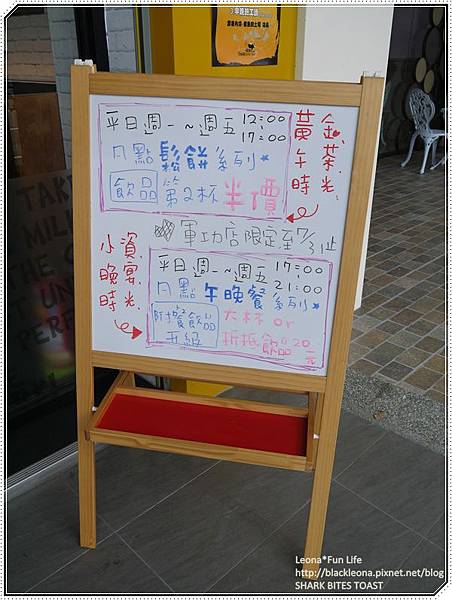 平日週一~週五 12:00
17:00
ㄇ點鬆餅系列*
飲品 第2杯半價
黃金.茶.
午時光
軍功店限定至7/31止
小資.宴.
晚時光
平日週一~週五 17:00
21:00
ㄇ點午晚餐系列*
附餐飲品
升級
大杯or
折抵飲品20
元
Leona*Fun Life
http://blackleona.pixnet.net/blog
SHARK BITES TOAST